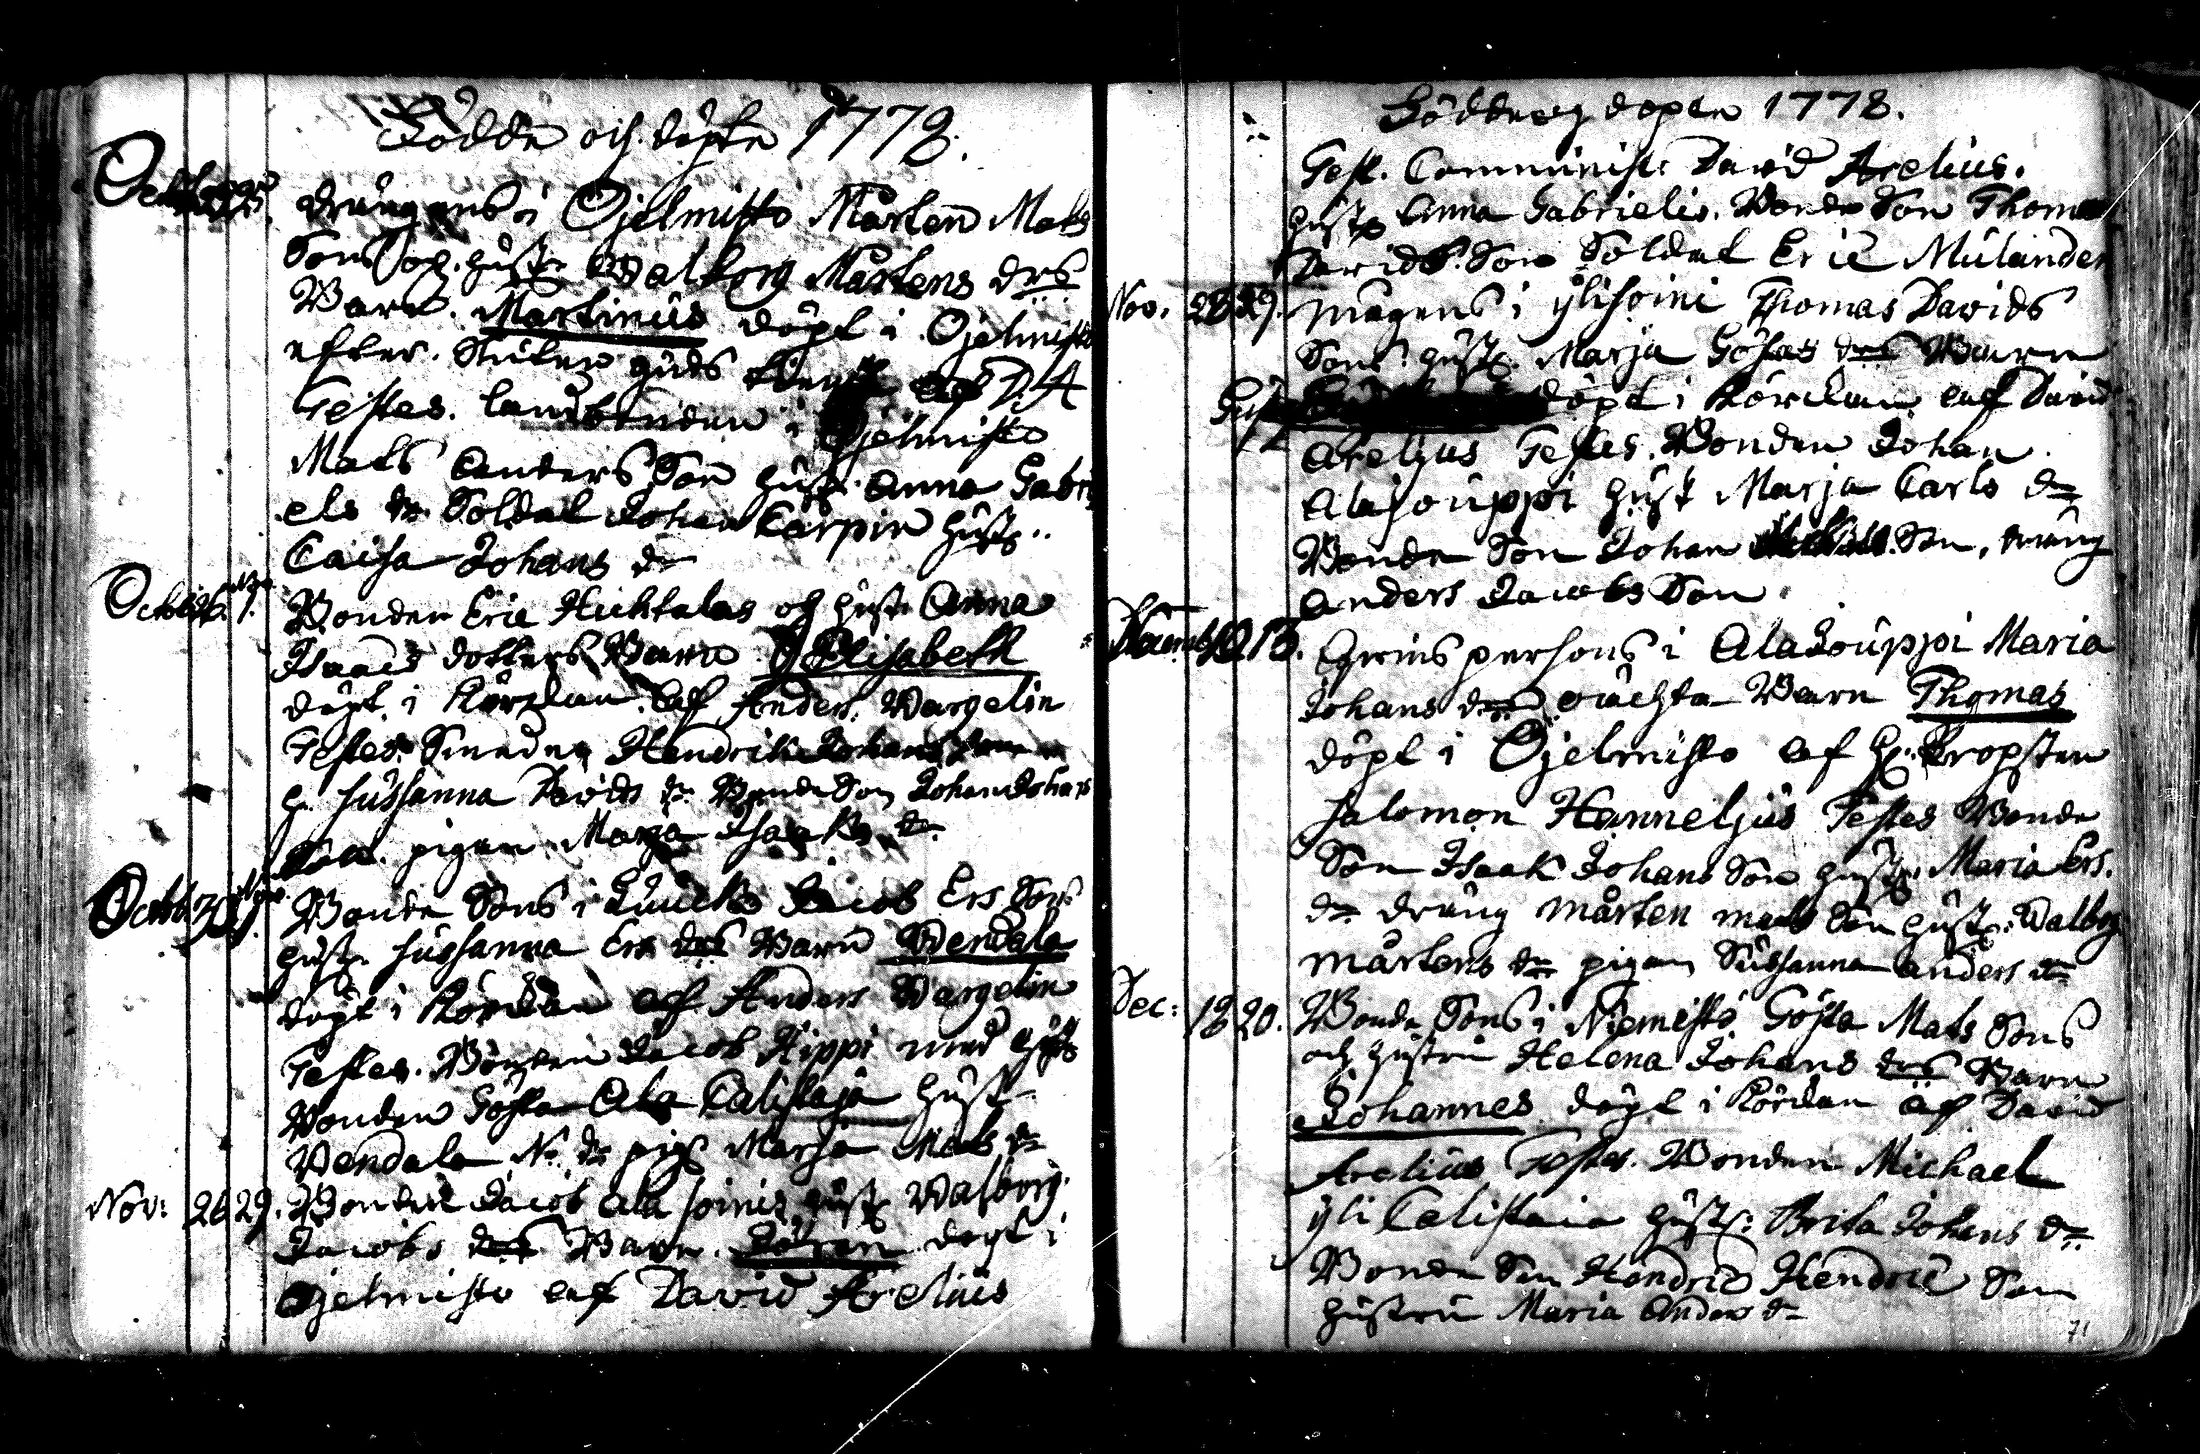 Födde och döpte 1778.
Octob 25
drängens i Ojelmisto Mårten Mats
Sons och hustr Walborg Mårtens drs
Barn. Martinus döpt i Ojelmisto
efter. sluten guds tienst af D. A
Testes. landbonden i Ojelmisto
Mats Anders Son hustr. Anna Gabri
els dr Soldat Johan Carpin hustr.
Caisa Johans dr
Octob 26. 1.
Bonden Eric Huhtalas och hustr Anna
Isaacs dotters Barn Elisabeth
döpt. i Kÿrckan. af Anders. Wargelin
Testes. Smeden Hendrik Johans Son
h. Sussanna Davids dr Bonde Son Johan Johans
Son. pigan Marja Isaaks dr
Octob. 30
Bonde Sons i Luucko Jacob Ers Sons
hustr Sussanna Ers drs Barn Wendela
döpt i Kÿrckan af Anders Wargelin
Testes. Bonden Jacob Hippi med hustr
Bonden Gösta Ala Calistaja hust
Vendela N. dr pig Marja Mats dr
Nov: 26 29. Bonden Jacob Ala soinis hustr Walborg
Jacobs drs Barn. Johan döpt i
Ojelmisto af David Arelius
Födde och döpte 1778.
Test. Communist. David Arelius.
hustr Anna Gabrielis. Bonde Son Thomas
Davids. Son Soldat Eric Mulander
Nov. 28 29. mågens i ÿlisoini Thomas Davids
Sons hustr. Marja Göstas drs Barn
Gust döpt i Kÿrckan af David
Arelius Testes. Bonden Johan
Alajouppi hust Marja Carls dr
Bonde Son Johan Son, dräng
Anders Jacobs Son
10 13. qwins persons i Ala Jouppi Maria
Johans drs oächta Barn Thomas
döpt i Ojelmisto af H. Propsten
Salomon Hanneljus Testes Bonde
Son Isaak Johans Son hustr. Maria Ers.
dr dräng Mårten Mats Son hustr. Walborg
Mårtens dr pigan Sussanna Anders dr
Dec: 18 20. Bonde Sons i Niemistö Gösta Mats Sons
och hustru Helena Johans drs Barn
Johannes döpt i Kÿrckan af David
Arelius Testes. Bonden Michael
ÿli Calistaia hustr: Brita Johans dr
Bonde Son Hendric Hendric Son
hustru Maria Anders dr
71